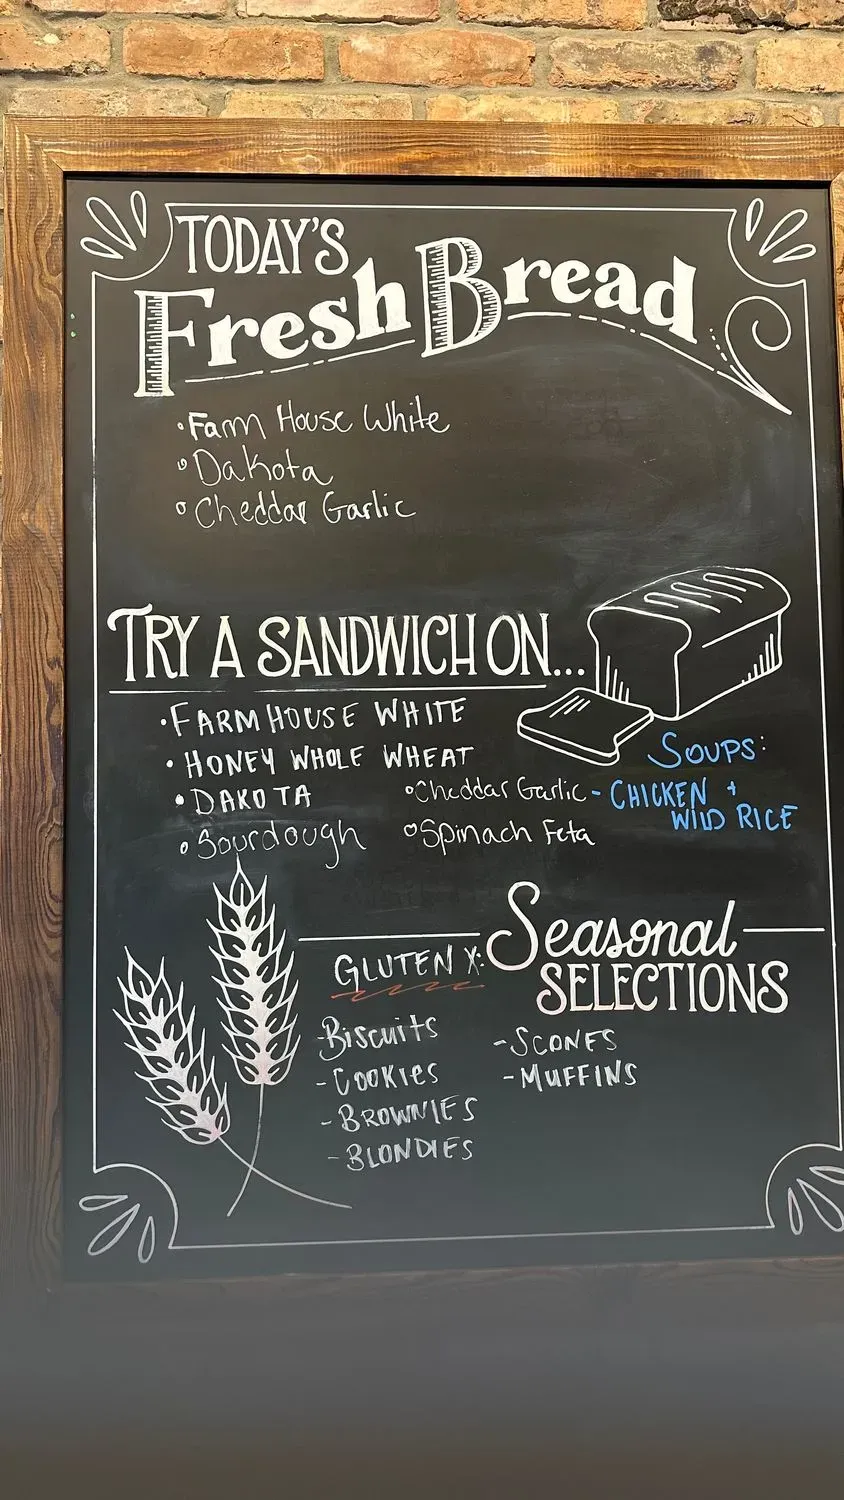 TODAY'S
Fresh Bread
• Farm House White
• Dakota
• Cheddar Garlic
TRY A SANDWICH ON...
• FARMHOUSE WHITE
• HONEY WHOLE WHEAT
• DAKOTA
• Sourdough
• Cheddar Garlic
• Spinach Feta
SOUPS:
- CHICKEN +
WILD RICE
Seasonal
SELECTIONS
GLUTEN X:
- Biscuits
- COOKIES
- BROWNIES
- BLONDIES
- SCONES
- MUFFINS